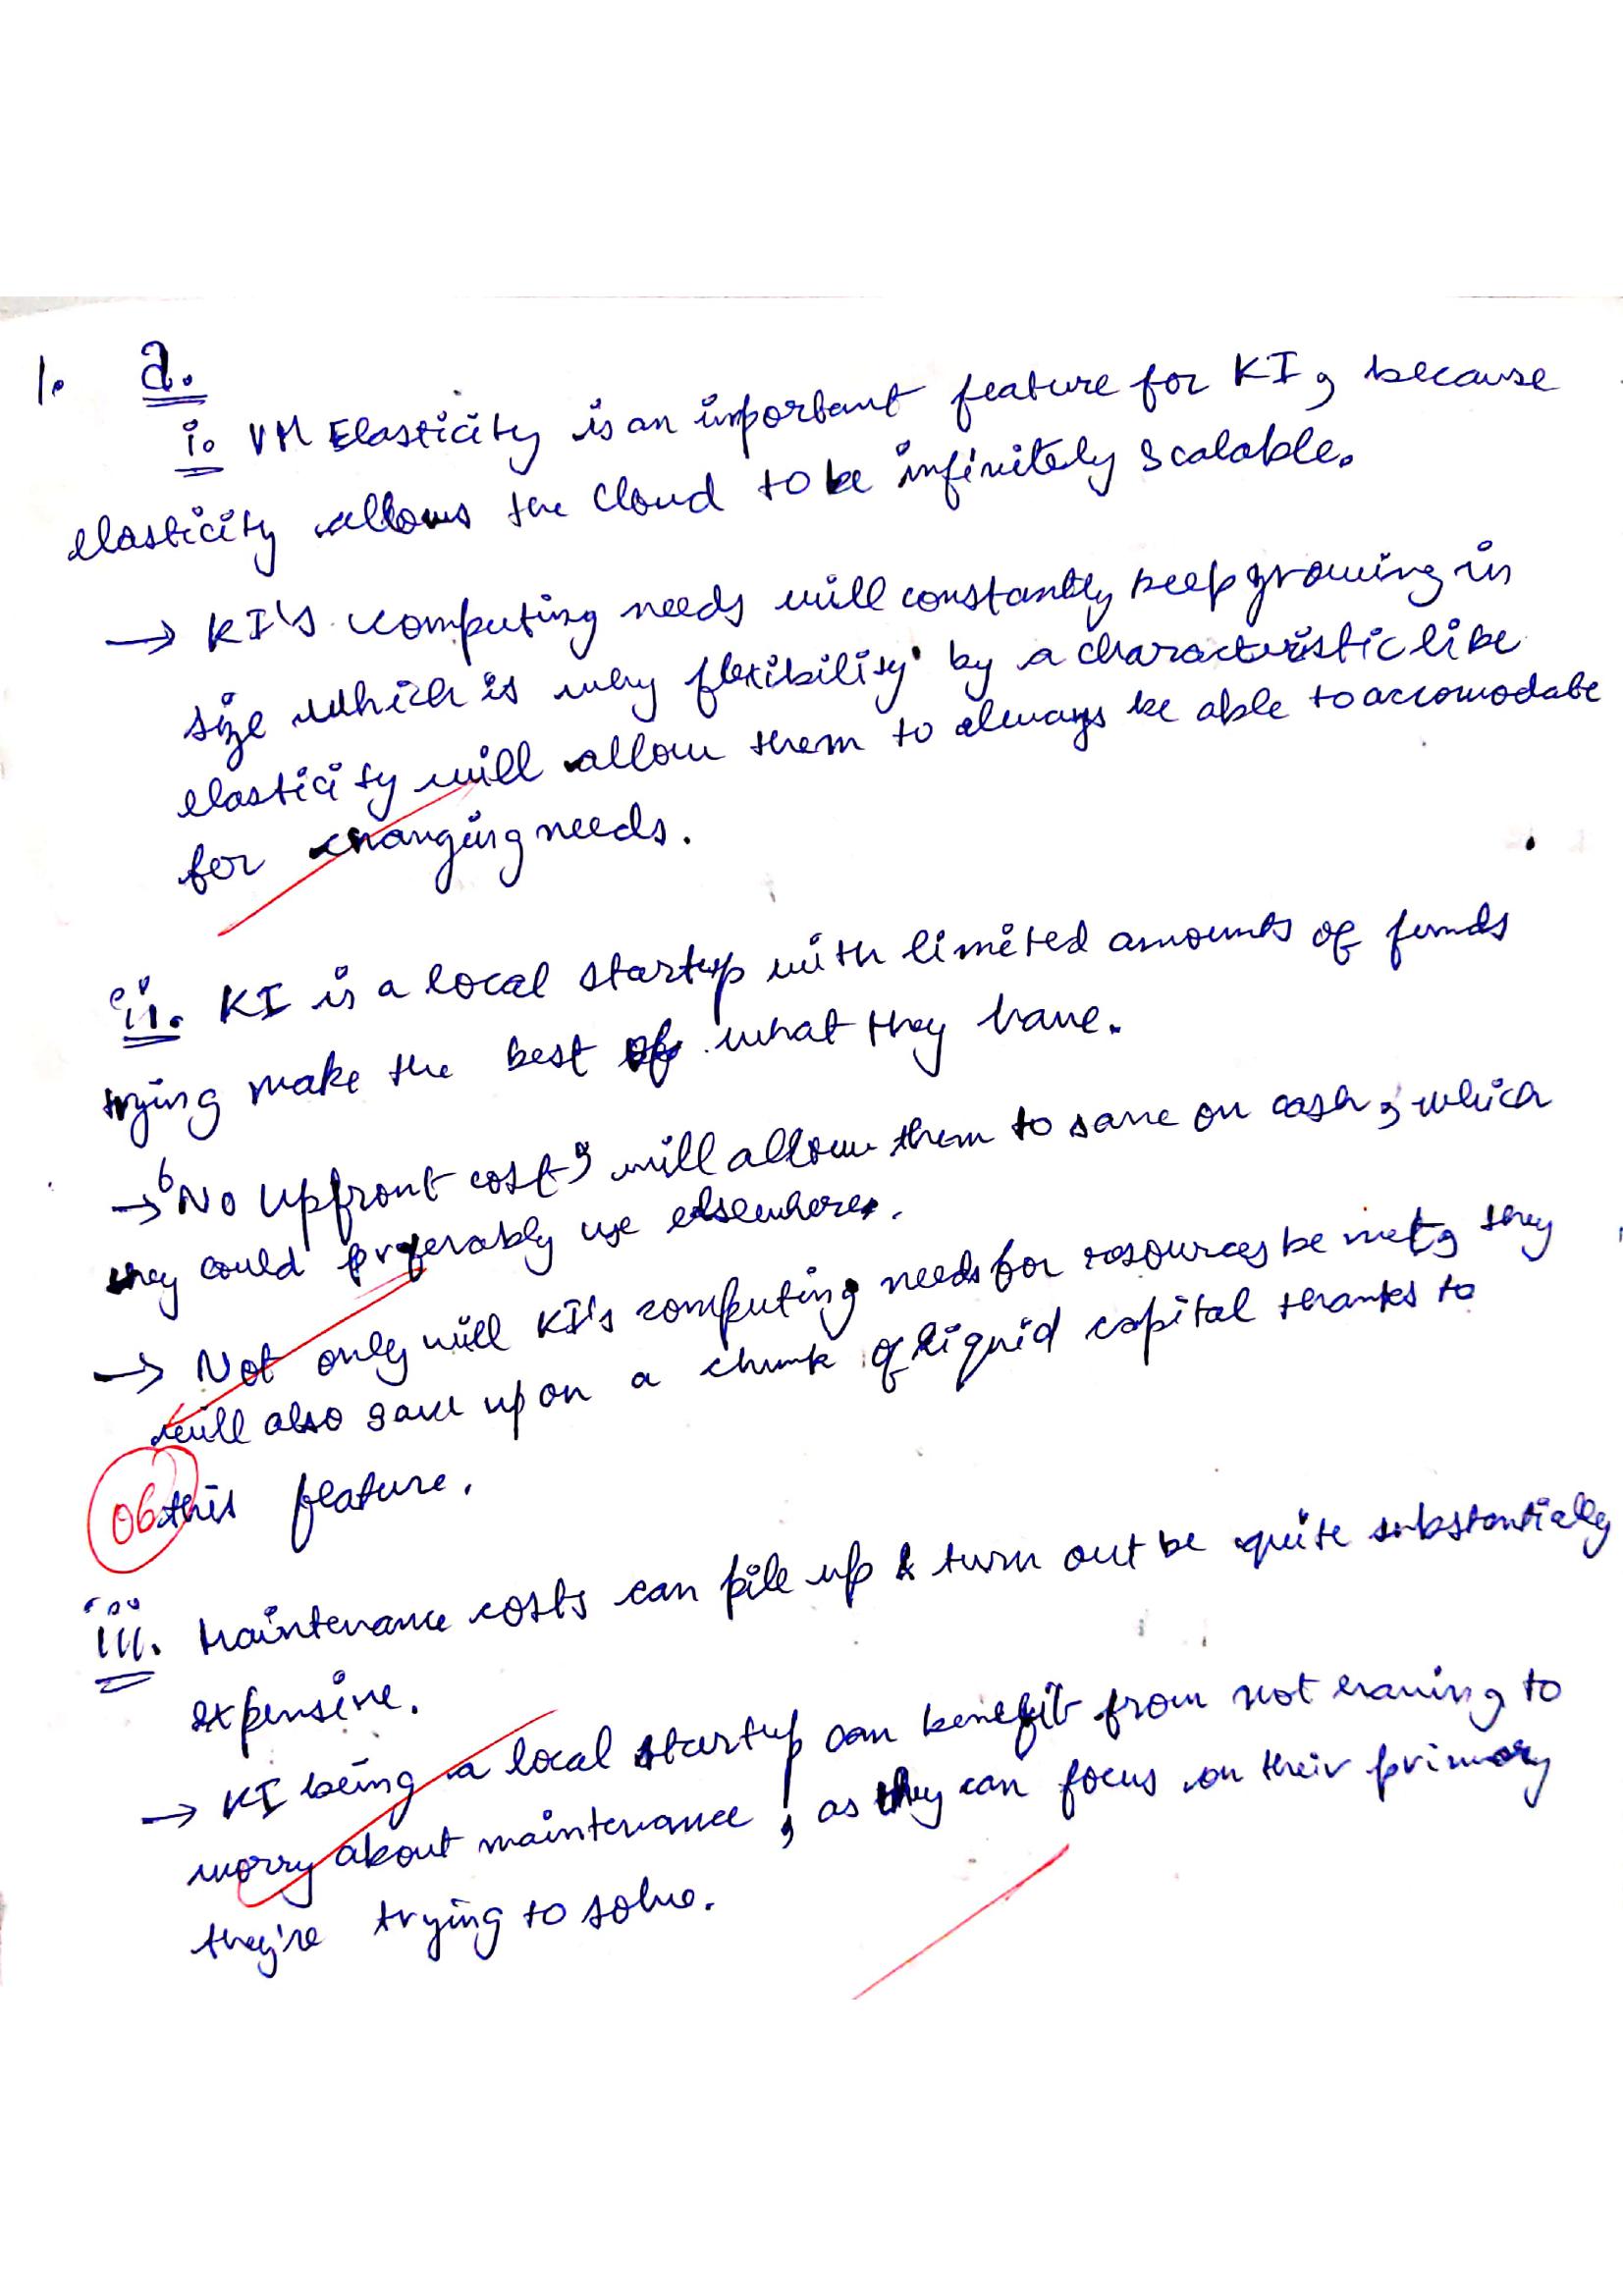 1. a.
i. VM Elasticity is an important feature for KI, because
elasticity allows the cloud to be infinitely scalable.
→ KI's computing needs will constantly keep growing in
size which is why flexibility by a characteristic like
elasticity will allow them to always be able to accomodate
for changing needs.
ii. KI is a local startup with limited amounts of funds
trying make the best of what they have.
→ 'No upfront cost' will allow them to save on cash, which
they could preferably use elsewhere.
→ Not only will KI's computing needs for resources be met, they
will also save up on a chunk of liquid capital thanks to
06 this feature.
iii. Maintenance costs can pile up & turn out be quite substantially
expensive.
→ KI being a local startup can benefit from not having to
worry about maintenance, as they can focus on their primary
they're trying to solve.